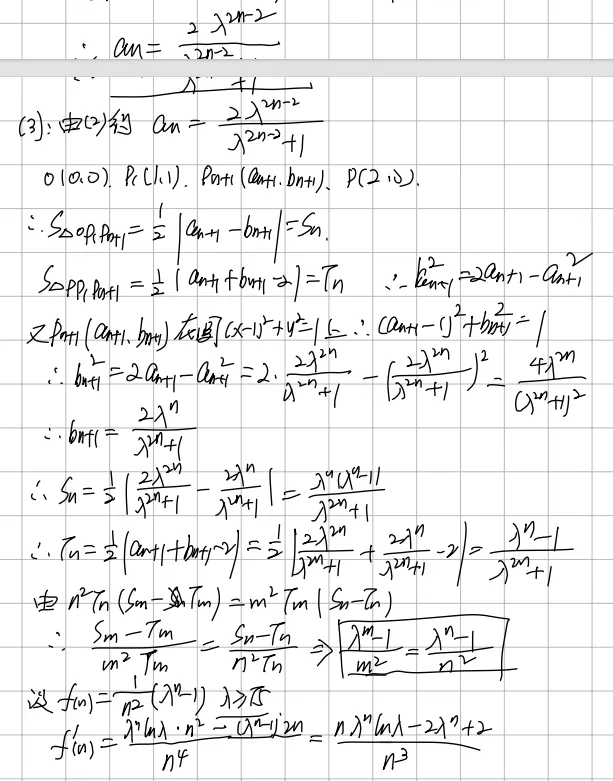 ∴ an = 2λ^{2n-2} / λ^{2n-2}+1
(3): 由(2)得 an = 2λ^{2n-2} / (λ^{2n-2}+1)
O(0,0). P₁(1,1). Pn+1(an+1, bn+1). P(2,0).
∴ S△OP₁Pn+1 = 1/2 |an+1 - bn+1| = Sn.
S△PP₁Pn+1 = 1/2 |an+1 + bn+1 - 2| = Tn ∴ b²n+1 = 2an+1 - an+1²
又 Pn+1(an+1, bn+1) 在圆 (x-1)²+y²=1 上 ∴ (an+1 - 1)² + bn+1² = 1
∴ bn+1² = 2an+1 - an+1² = 2· 2λ^{2n}/(λ^{2n}+1) - (2λ^{2n}/(λ^{2n}+1))² = 4λ^{2n}/(λ^{2n}+1)²
∴ bn+1 = 2λ^n/(λ^{2n}+1)
∴ Sn = 1/2 |2λ^{2n}/(λ^{2n}+1) - 2λ^n/(λ^{2n}+1)| = λ^n(λ^n-1)/(λ^{2n}+1)
∴ Tn = 1/2 |an+1 + bn+1 - 2| = 1/2 |2λ^{2n}/(λ^{2n}+1) + 2λ^n/(λ^{2n}+1) - 2| = (λ^n-1)/(λ^{2n}+1)
由 n²Tn(Sm - Tm) = m²Tm(Sn - Tn)
∴ (Sm - Tm)/(m²Tm) = (Sn - Tn)/(n²Tn) ⇒ (λ^m-1)/m² = (λ^n-1)/n²
设 f(n) = 1/n² (λ^n-1) λ≥√5
f'(n) = (λ^n lnλ · n² - (λ^n-1)·2n)/n⁴ = (nλ^n lnλ - 2λ^n + 2)/n³